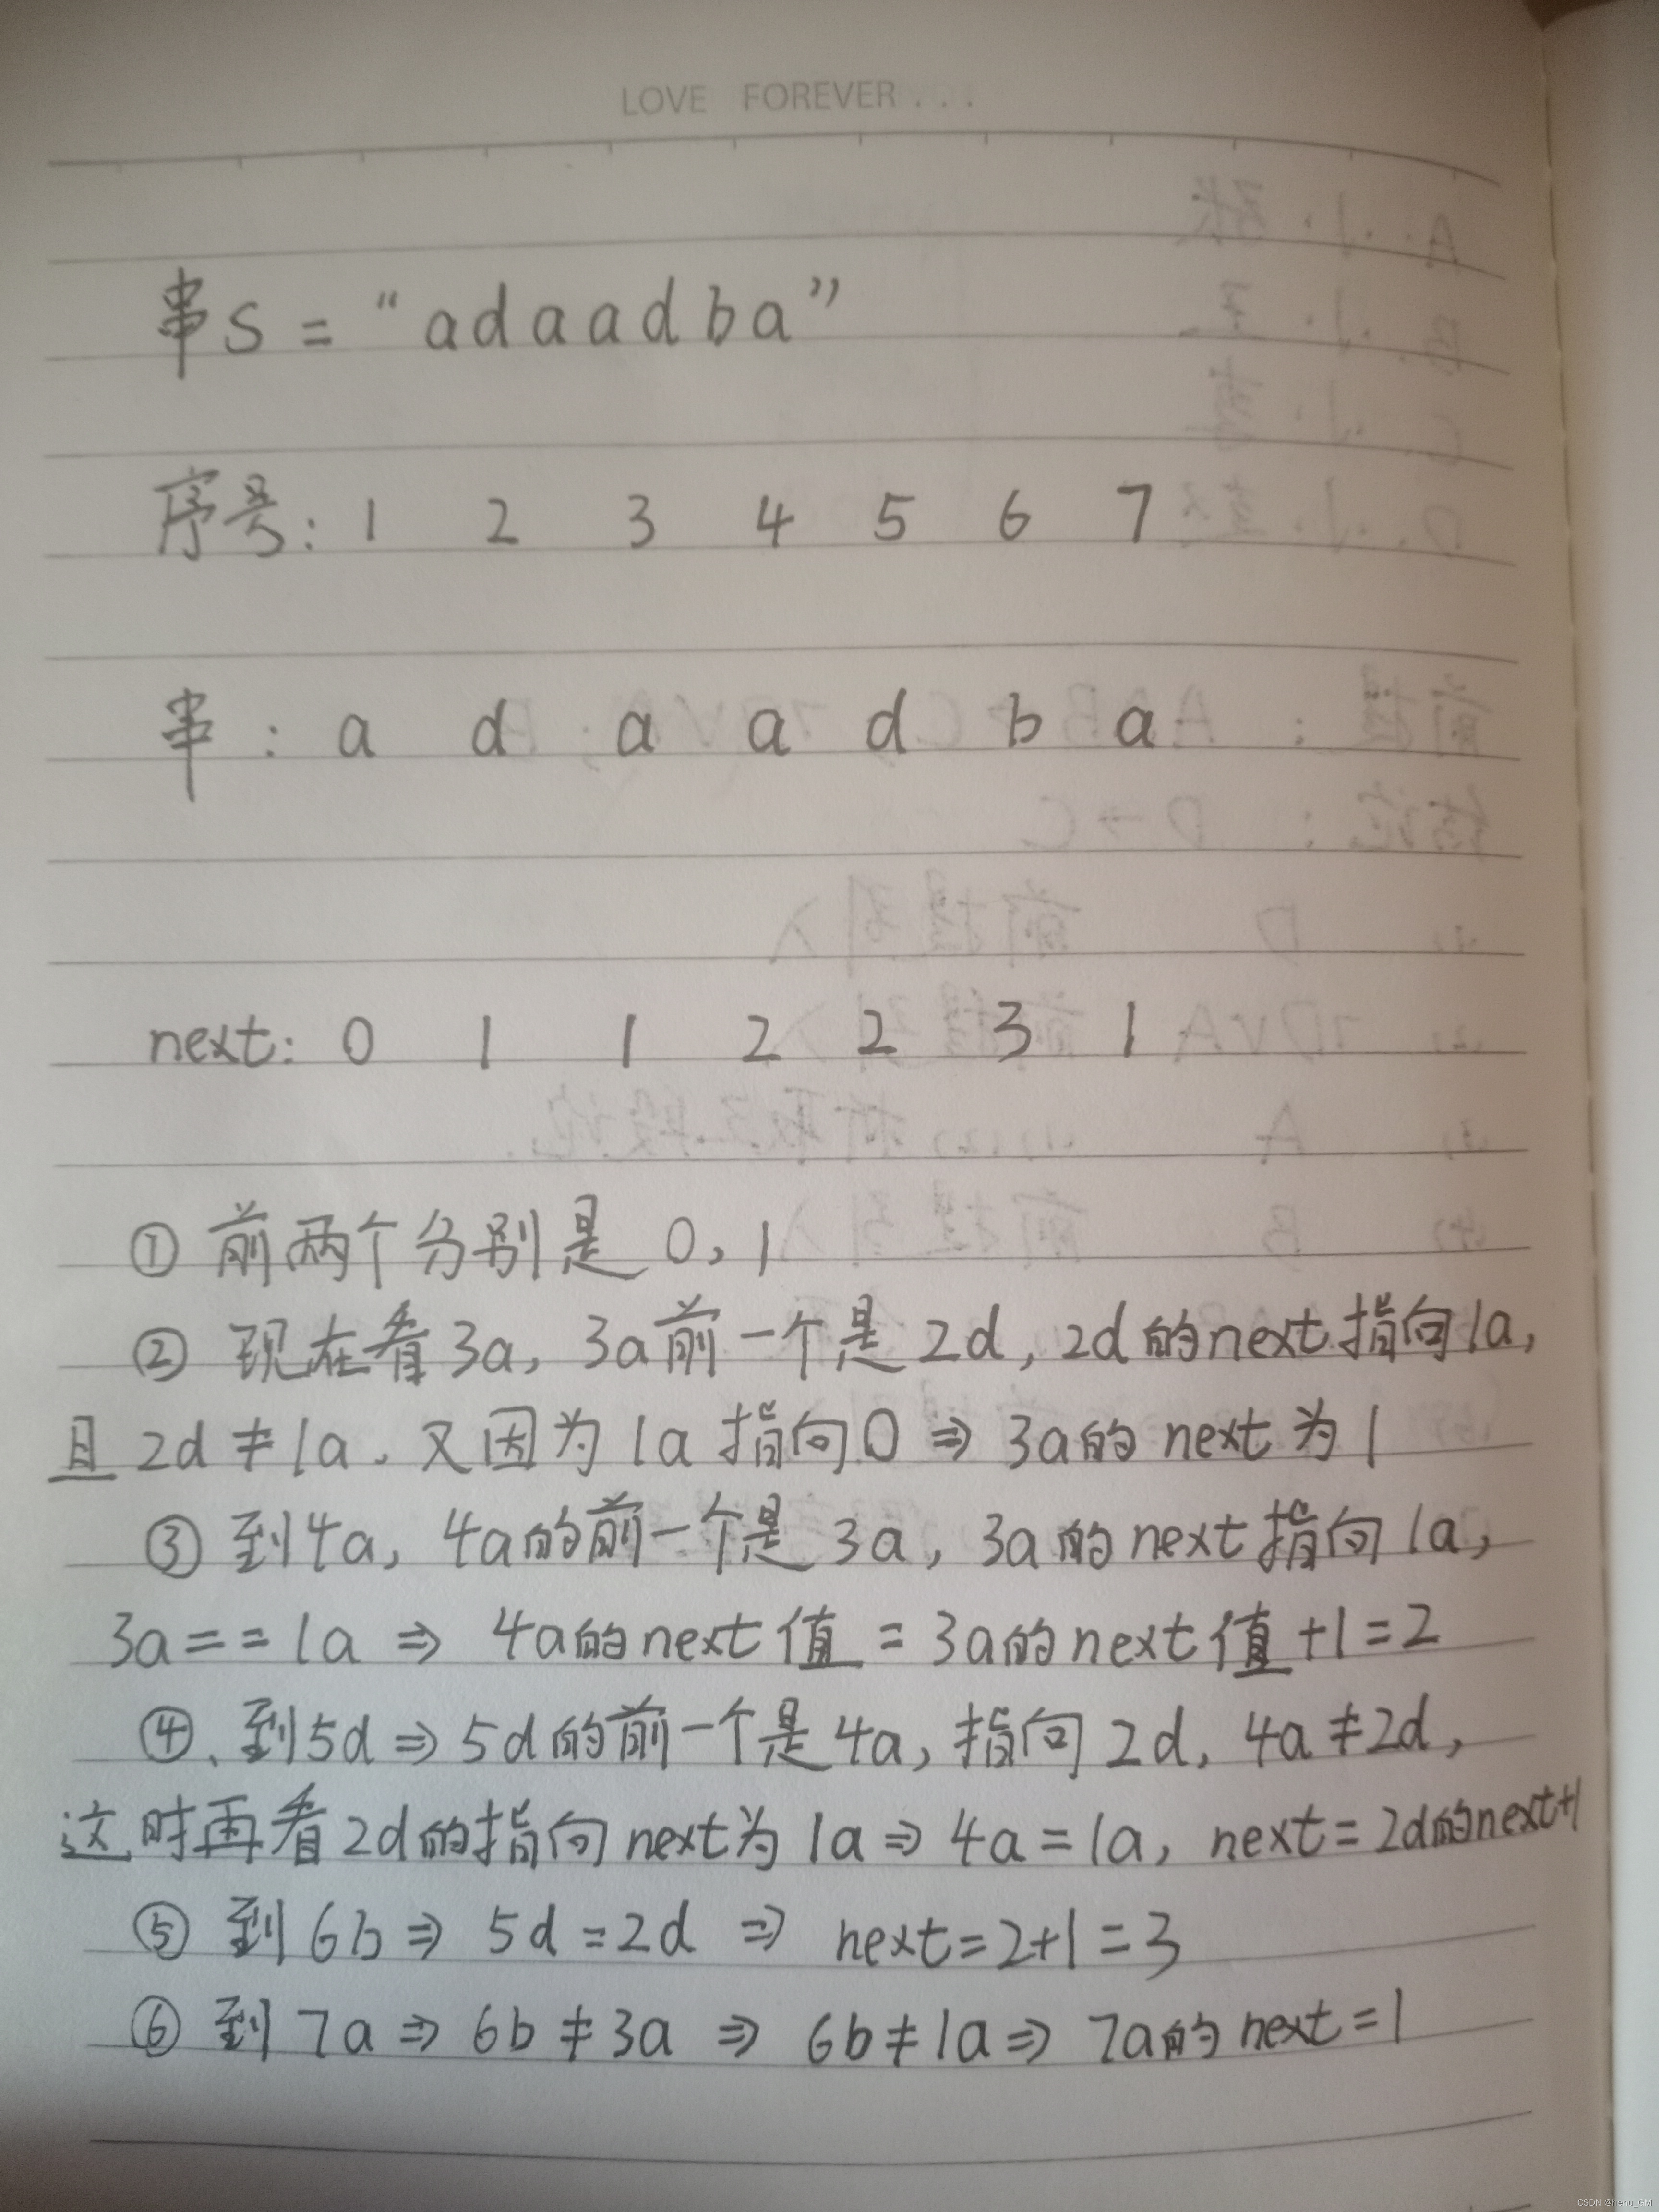 LOVE FOREVER...
串S = “adaadba”
序号: 1 2 3 4 5 6 7
串 : a d a a d b a
next: 0 1 1 2 2 3 1
① 前两个分别是 0, 1
② 现在看3a, 3a前一个是2d, 2d的next指向1a,
且 2d ≠ 1a. 又因为 1a 指向0 ⇒ 3a的 next 为 1
③ 到4a, 4a的前一个是 3a, 3a的next指向1a,
3a == 1a ⇒ 4a的next值 = 3a的next值+1=2
④、到5d ⇒ 5d的前一个是4a, 指向2d, 4a≠2d,
这时再看2d的指向next为 1a ⇒ 4a=1a, next=2d的next+1
⑤ 到6b ⇒ 5d=2d ⇒ next=2+1=3
⑥ 到7a ⇒ 6b≠3a ⇒ 6b≠1a ⇒ 7a的next=1